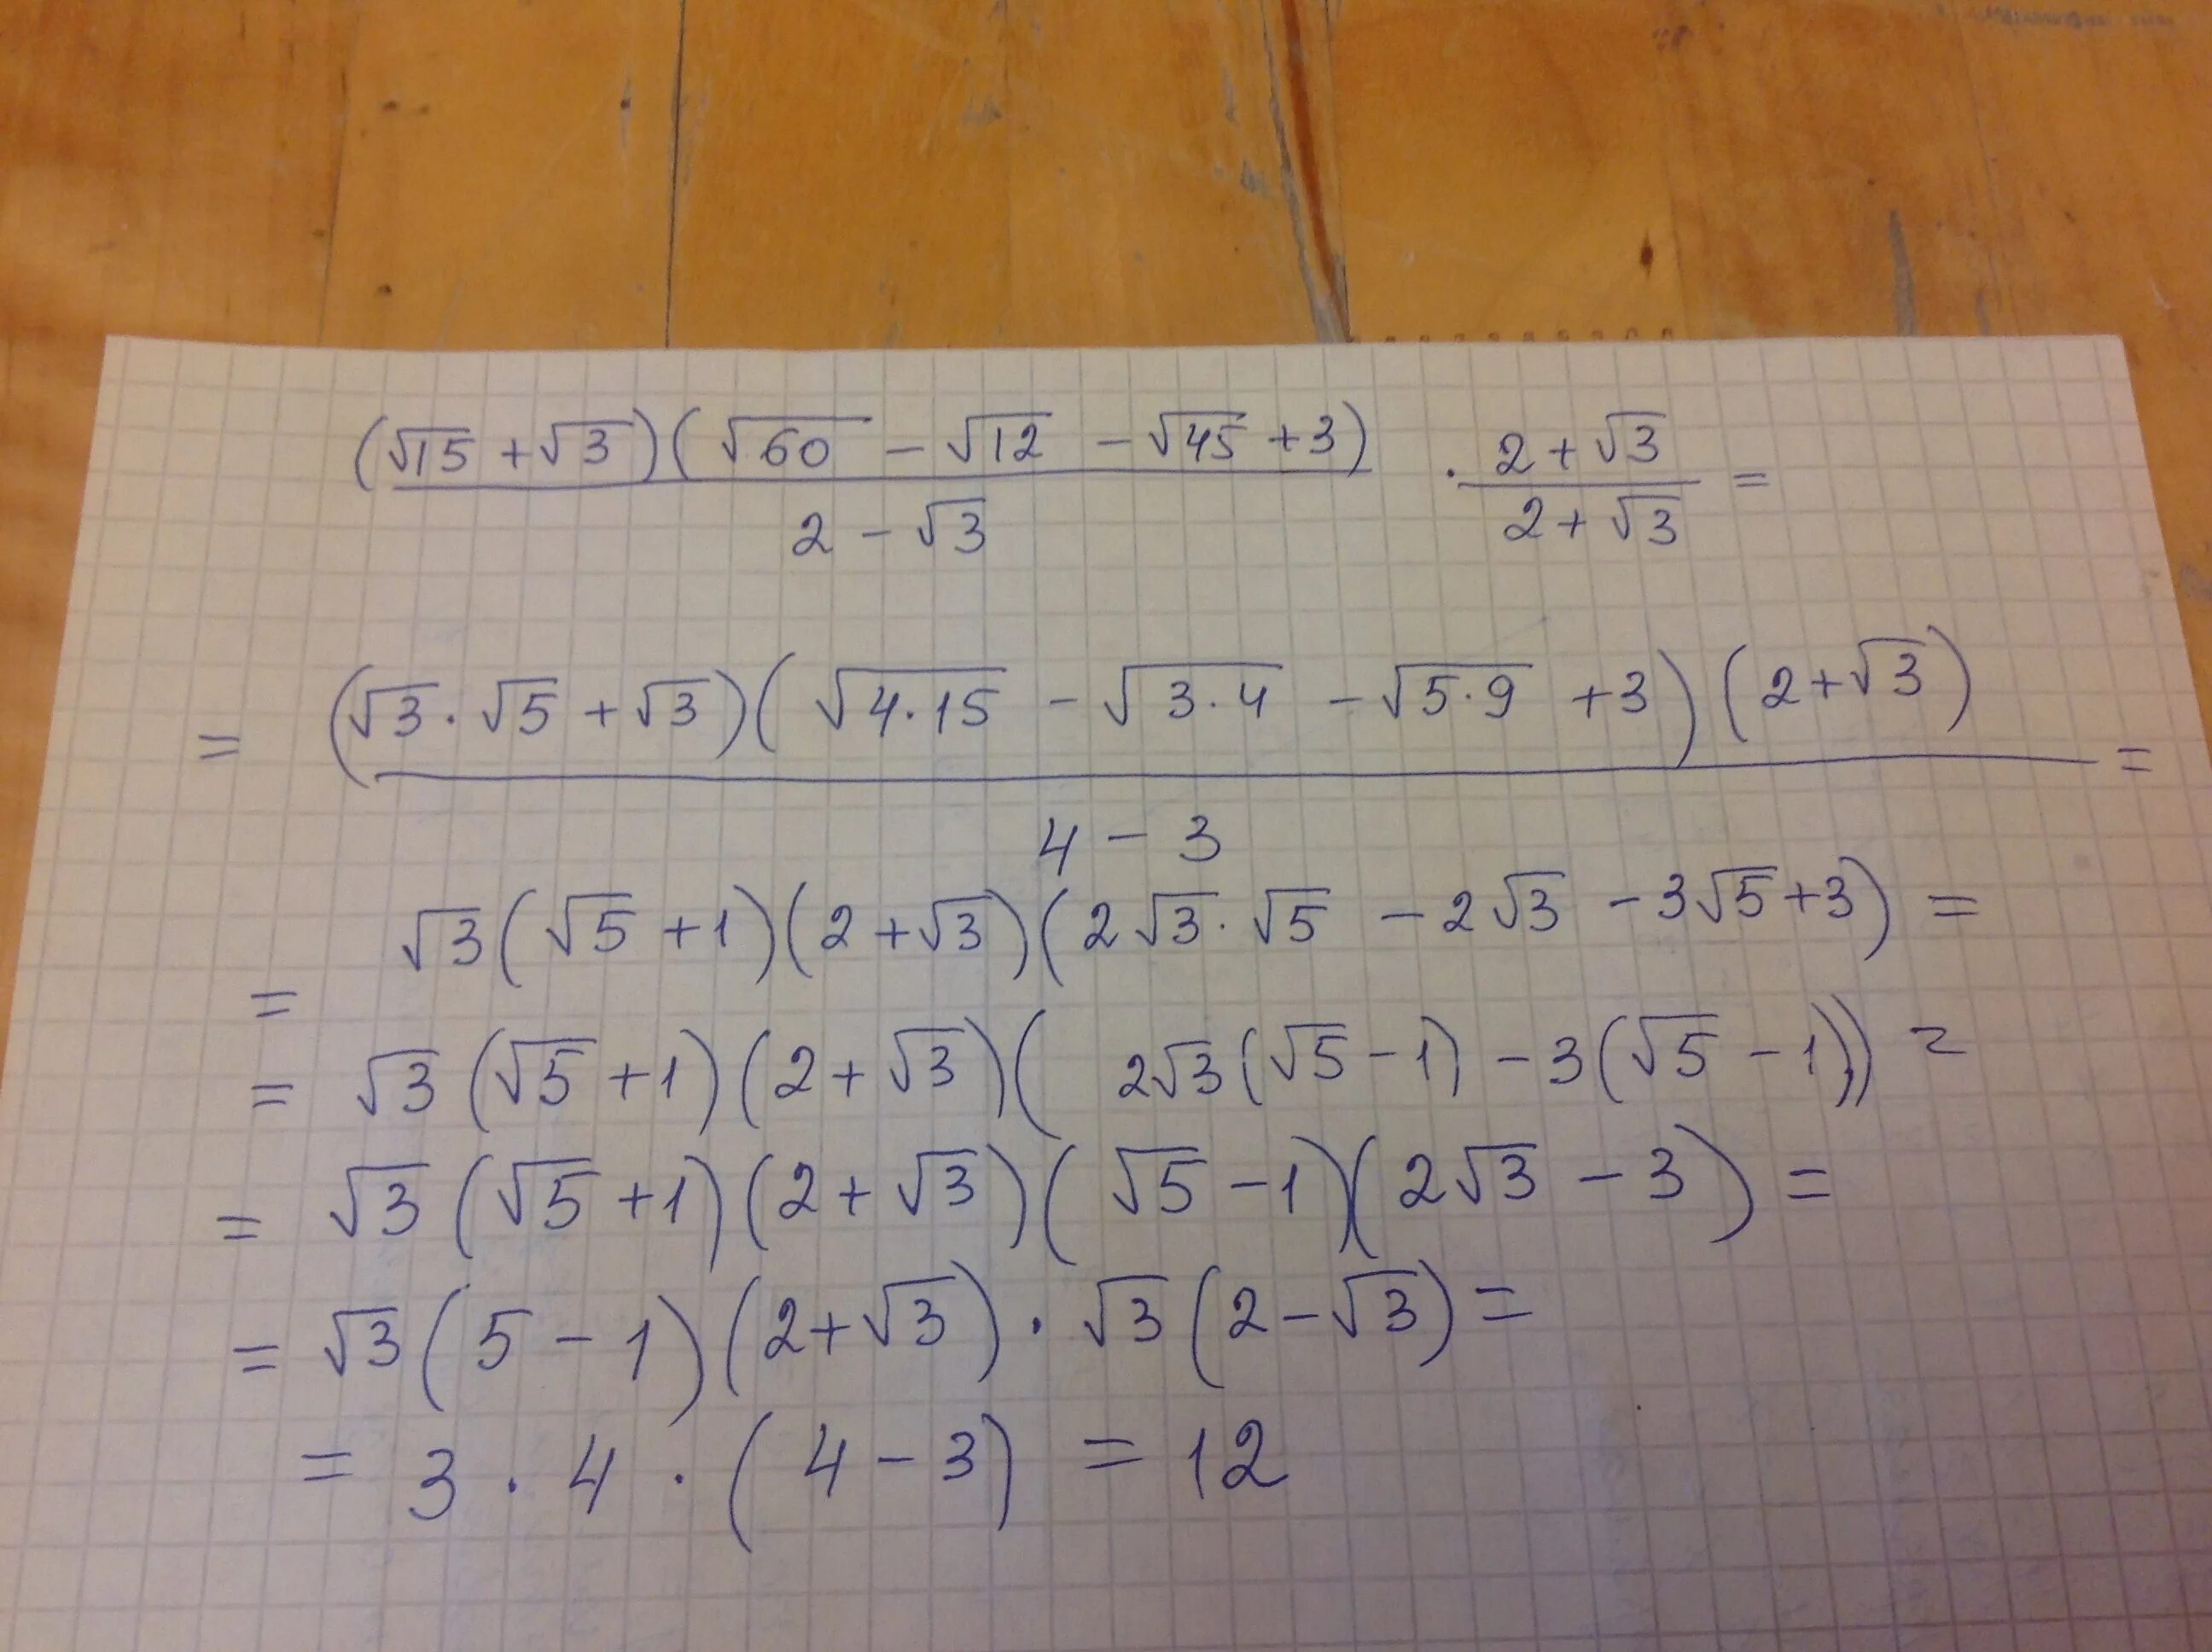 (√15 + √3)(√60 - √12 - √45 + 3) / 2 - √3 · 2 + √3 / 2 + √3 =
= (√3 · √5 + √3)(√4·15 - √3·4 - √5·9 + 3)(2 + √3) / 4 - 3 =
= √3(√5 + 1)(2 + √3)(2√3 · √5 - 2√3 - 3√5 + 3) =
= √3(√5 + 1)(2 + √3)(2√3(√5 - 1) - 3(√5 - 1)) =
= √3(√5 + 1)(2 + √3)(√5 - 1)(2√3 - 3) =
= √3(5 - 1)(2 + √3) · √3(2 - √3) =
= 3 · 4 · (4 - 3) = 12